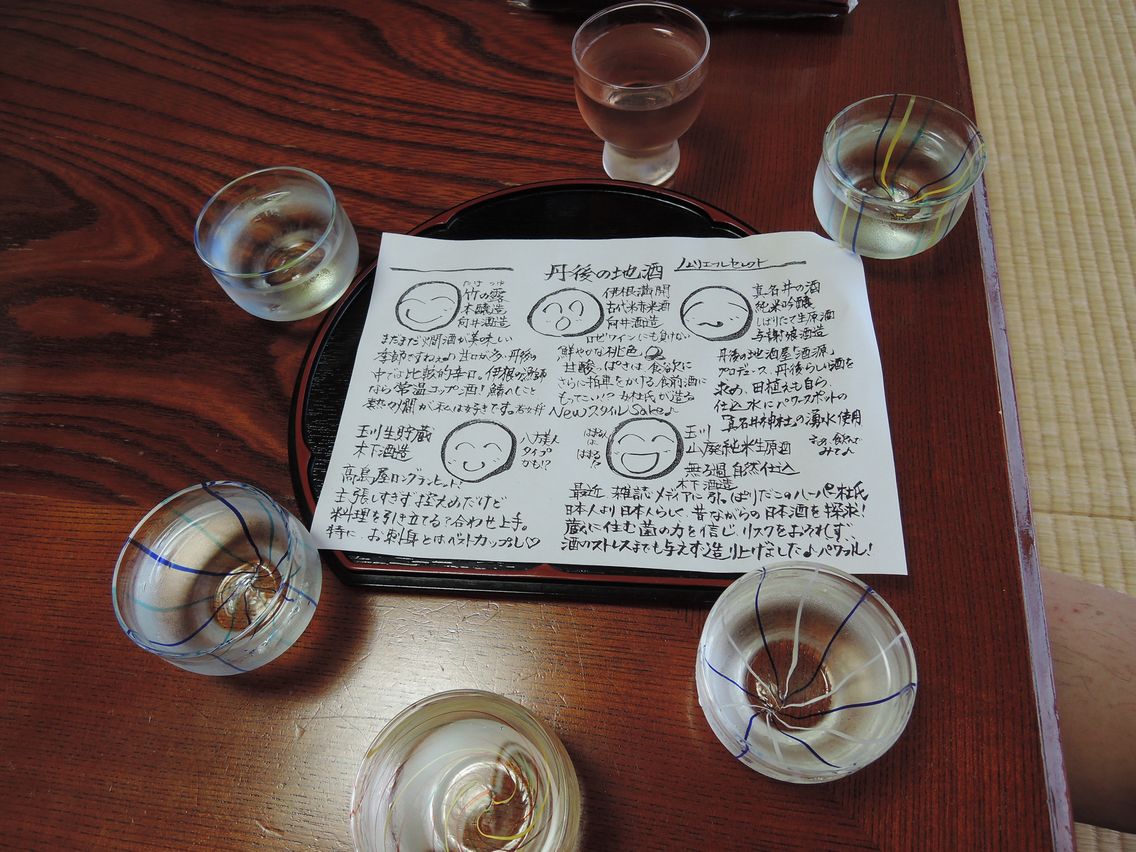 丹後の地酒 ノムリエールセレクト
たけ つゆ
竹の露
本醸造
向井酒造
まだまだ燗酒が美味しい
季節ですねぇ♪ 甘口が多い丹後の
中では比較的辛口。伊根の漁師
なら常温コップ酒！鯖へしこと
熱々燗が私は好きです。
伊根満開
古代米赤米酒
向井酒造
ロゼワインにも負けない
鮮やかな桃色
甘酸っぱさは食欲に
さらに拍車をかける食前酒に
もってこい!? 女杜氏が造る
NewスタイルSake♪
真名井の酒
純米吟醸
しぼりたて生原酒
与謝娘酒造
丹後の地酒屋「酒源」
プロデュース、丹後らしい酒を
求め、田植えも自ら、
仕込水にパワースポットの
「真名井神社」の湧水使用
飲んで
みて♪
玉川生貯蔵
木下酒造
八方美人
タイプ
かも!?
髙島屋ロングランヒット！
主張しすぎず控えめだけど
料理を引き立てる合わせ上手。
特に、お刺身とはベストカップル♡
玉川
山廃純米生原酒
無ろ過 自然仕込
木下酒造
最近 雑誌・メディアに引っぱりだこのハーパー杜氏
日本人より日本人らしく 昔ながらの日本酒を探求！
蔵に住む菌の力を信じ、リスクをおそれず、
酒のストレスまでも与えず造り上げました♪パワフル！